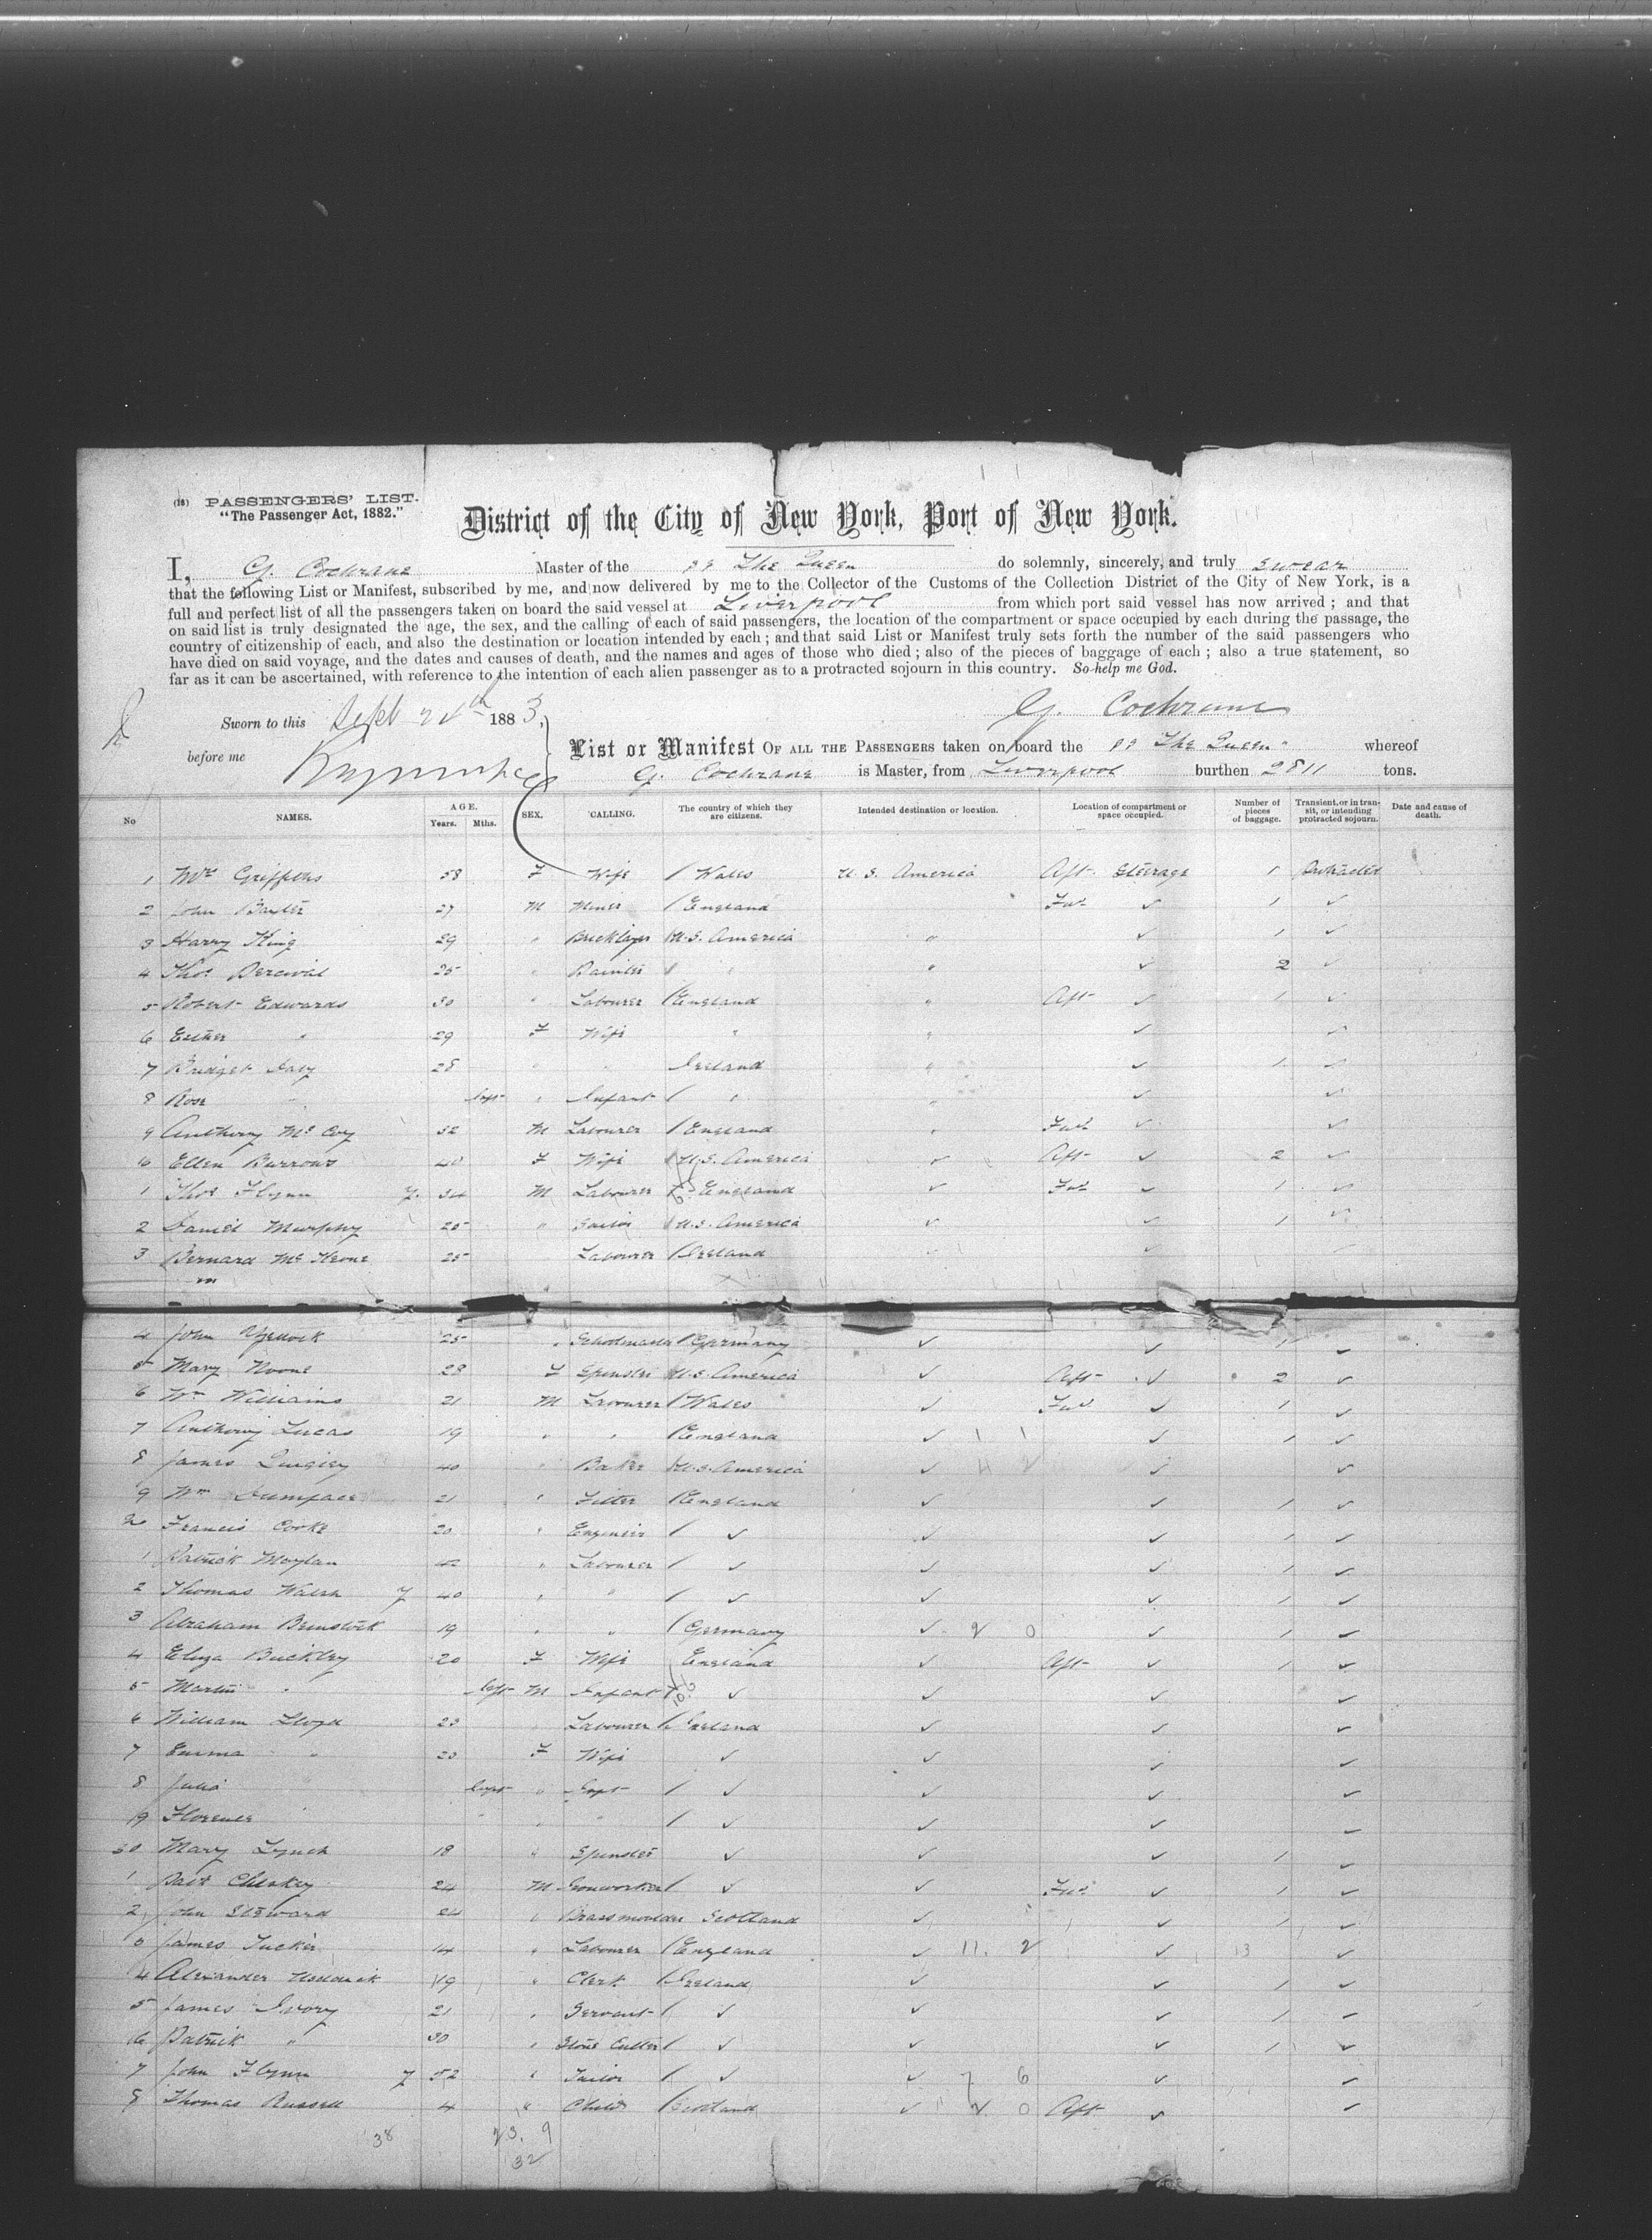 (16) PASSENGERS' LIST.
"The Passenger Act, 1882."
District of the City of New York, Port of New York.
I, G. Cochrane Master of the SS The Queen do solemnly, sincerely, and truly swear
that the following List or Manifest, subscribed by me, and now delivered by me to the Collector of the Customs of the Collection District of the City of New York, is a
full and perfect list of all the passengers taken on board the said vessel at Liverpool from which port said vessel has now arrived ; and that
on said list is truly designated the age, the sex, and the calling of each of said passengers, the location of the compartment or space occupied by each during the passage, the
country of citizenship of each, and also the destination or location intended by each ; and that said List or Manifest truly sets forth the number of the said passengers who
have died on said voyage, and the dates and causes of death, and the names and ages of those who died ; also of the pieces of baggage of each ; also a true statement, so
far as it can be ascertained, with reference to the intention of each alien passenger as to a protracted sojourn in this country. So help me God.
G. Cochrane
Sworn to this Sept 1883,
before me
List or Manifest OF ALL THE PASSENGERS taken on board the SS The Queen whereof
G. Cochrane is Master, from Liverpool burthen 2811 tons.
No NAMES. AGE. Years. Mths. SEX. CALLING. The country of which they are citizens. Intended destination or location. Location of compartment or space occupied. Number of pieces of baggage. Transient, or in transit, or intending protracted sojourn. Date and cause of death.
1 Griffiths 58 F Wife / Wales U. S. America Aft Steerage 1 Protracted
2 John Baxter 27 M Miner / England " Fwd ✓ 1 ✓
3 Harry King 29 " Bricklayer / U.S. America " ✓ 1 ✓
4 Thos Percival 25 " Painter / " " ✓ 2 ✓
5 Robert Edwards 30 " Labourer / England " Aft ✓ 1 ✓
6 Esther " 29 F Wife " " ✓ ✓
7 Bridget 28 " " Ireland " ✓ 1 ✓
8 Rose " Inft " Infant / " " ✓ ✓
9 Anthony McCoy 32 M Labourer / England " Fwd ✓ ✓
10 Ellen Burrows 40 F Wife / U.S. America ✓ Aft ✓ 2 ✓
1 Thos Flynn 34 M Labourer / England ✓ Fwd ✓ 1 ✓
2 Daniel Murphy 25 " Sailor / U.S. America ✓ ✓ 1 ✓
3 Bernard McKeone 25 Labourer / Ireland ✓ ✓
4 John 25 " Schoolmaster / Germany ✓ ✓ 1 ✓
5 Mary Noone 28 F Spinster / U.S. America ✓ Aft ✓ 2 ✓
6 Wm Williams 21 M Labourer / Wales ✓ Fwd ✓ 1 ✓
7 Anthony Lucas 19 " " / England ✓ 1 1 ✓ 1 ✓
8 James Quigley 40 " Baker / U.S. America ✓ ✓ ✓
9 Wm 21 " Fitter / England ✓ ✓ 1 ✓
20 Francis Cooke 20 " Engineer / ✓ ✓ ✓ 1 ✓
1 Patrick Moylan " Labourer / ✓ ✓ ✓ 1 ✓
2 Thomas Walsh 40 " " / ✓ ✓ ✓ 1 ✓
3 Abraham 19 " " / Germany ✓ 2 0 ✓ 1 ✓
4 Eliza Buckley 20 F Wife England ✓ Aft ✓ 1 ✓
5 Martin " Inft M Infant / ✓ ✓ ✓ ✓
6 William Lloyd 23 Labourer / Ireland ✓ ✓ ✓
7 Emma " 20 F Wife ✓ ✓ ✓ ✓
8 Julia " Inft " Inft / ✓ ✓ ✓ ✓
9 Florence " " " " / ✓ ✓ ✓ ✓
30 Mary Lynch 18 " Spinster ✓ ✓ ✓ 1 ✓
1 Patk 24 M Ironworker / ✓ ✓ Fwd ✓ 1 ✓
2 John Steward 24 " Brassmoulder Scotland ✓ ✓ 1 ✓
3 James Tucker 14 " Labourer / England ✓ 11. 2 ✓ 13 ✓
4 Alexander 19 " Clerk / Ireland ✓ ✓ 1 ✓
5 James Ivory 21 " Servant / ✓ ✓ ✓ 1 ✓
6 Patrick " 30 " Stone Cutter / ✓ ✓ ✓ 1 ✓
7 John Flynn 52 " Tailor / ✓ ✓ 7 6 ✓ ✓
8 Thomas Russell 4 " Child / Scotland ✓ 2 0 Aft ✓ ✓
38 23. 9
32